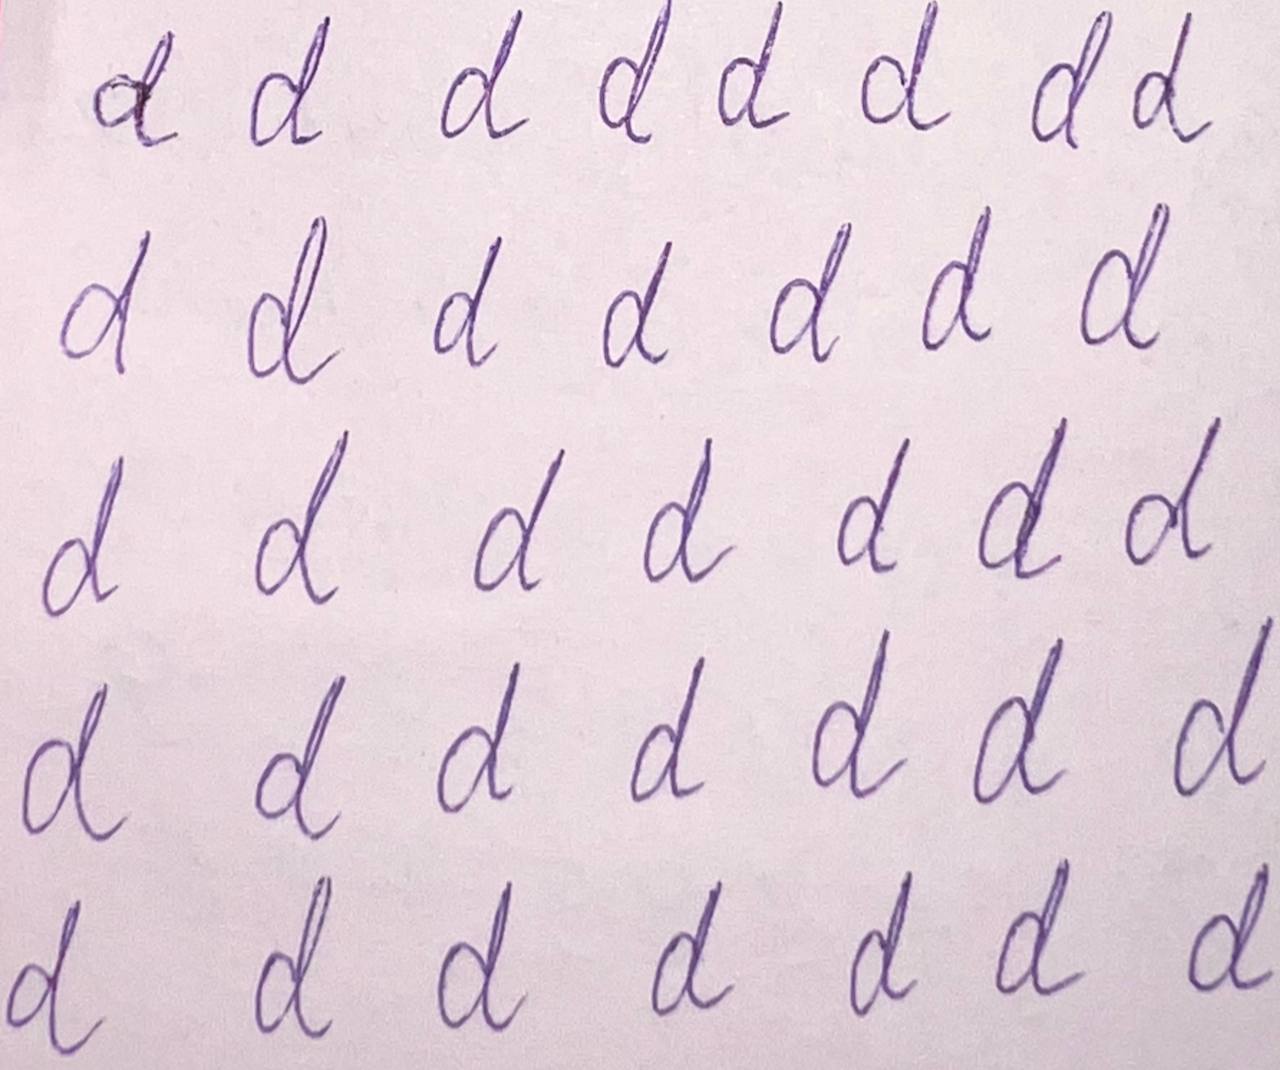 d d d d d d d d
d d d d d d d
d d d d d d d
d d d d d d d
d d d d d d d